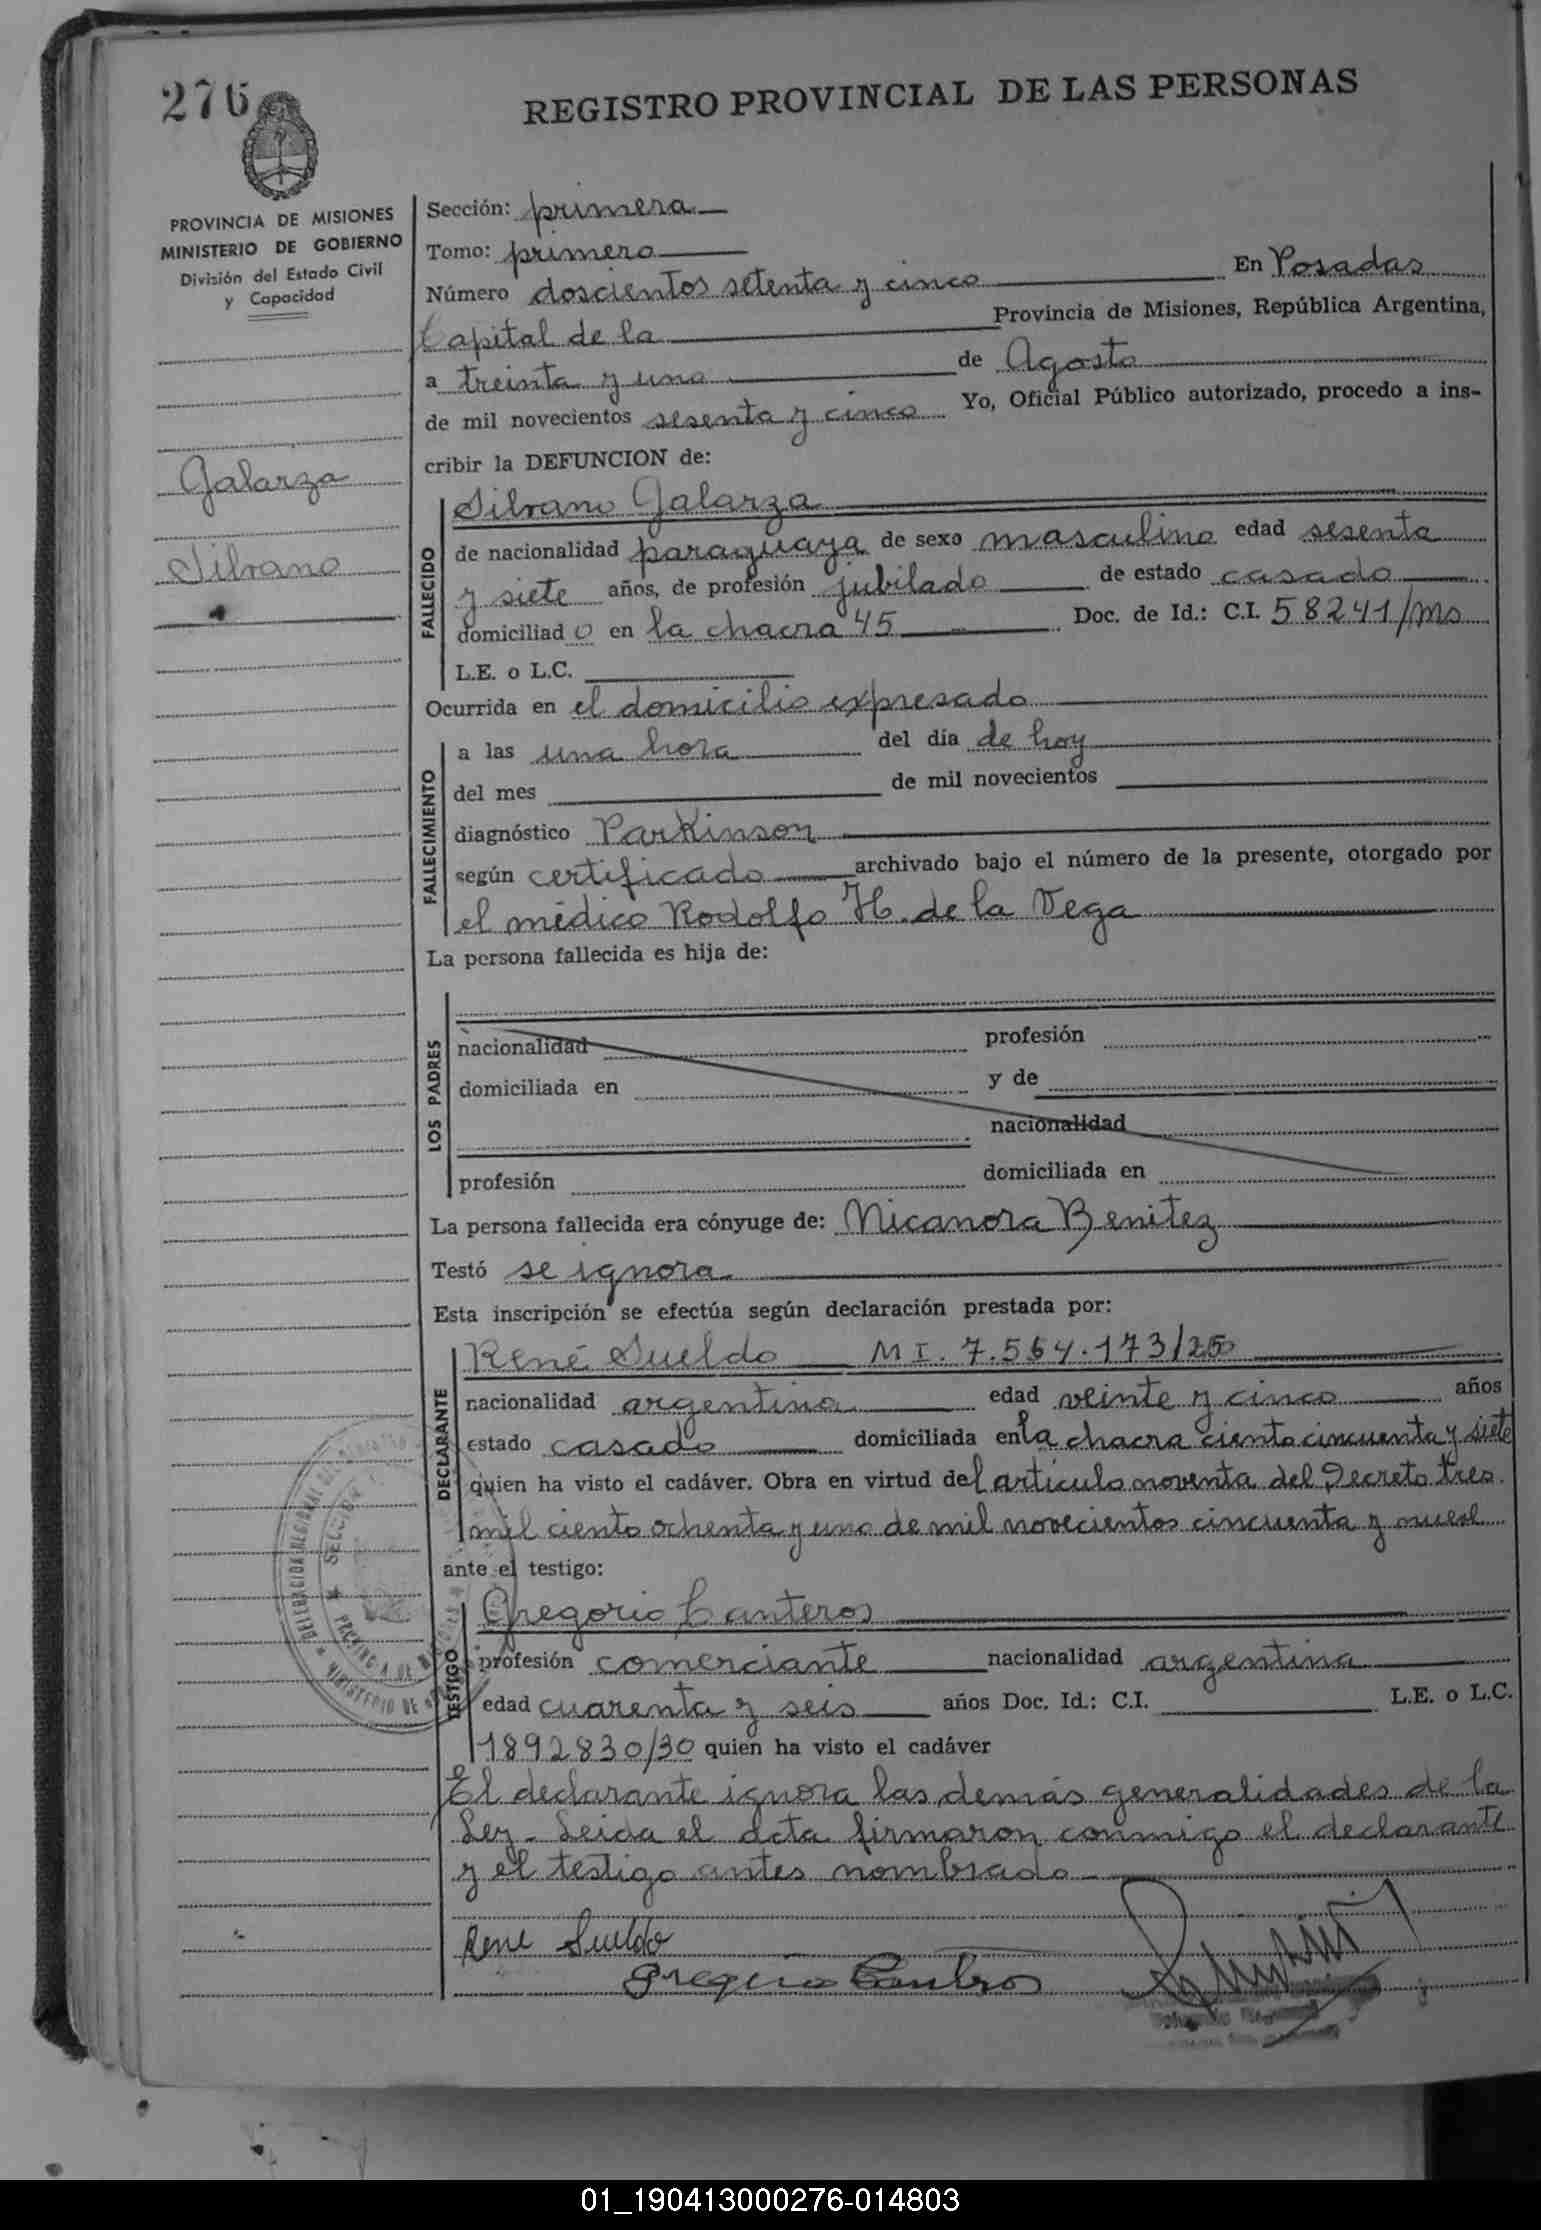 276
REGISTRO PROVINCIAL DE LAS PERSONAS
PROVINCIA DE MISIONES
MINISTERIO DE GOBIERNO
División del Estado Civil
y Capacidad
Galarza
Silvano
Sección: primera
Tomo: primero
Número doscientos setenta y cinco En Posadas
Capital de la Provincia de Misiones, República Argentina,
a treinta y uno de Agosto
de mil novecientos sesenta y cinco Yo, Oficial Público autorizado, procedo a ins-
cribir la DEFUNCION de:
FALLECIDO
Silvano Galarza
de nacionalidad paraguaya de sexo masculino edad sesenta
y siete años, de profesión jubilado de estado casado
domiciliad o en la chacra 45 Doc. de Id.: C.I. 58241/ms
L.E. o L.C.
Ocurrida en el domicilio expresado
FALLECIMIENTO
a las una hora del día de hoy
del mes de mil novecientos
diagnóstico Parkinson
según certificado archivado bajo el número de la presente, otorgado por
el médico Rodolfo H. de la Vega
La persona fallecida es hija de:
LOS PADRES
nacionalidad profesión
domiciliada en y de
nacionalidad
profesión domiciliada en
La persona fallecida era cónyuge de: Nicanora Benitez
Testó se ignora
Esta inscripción se efectúa según declaración prestada por:
DECLARANTE
René Sueldo M I. 7.564.173/25
nacionalidad argentina edad veinte y cinco años
estado casado domiciliada en la chacra ciento cincuenta y siete
quien ha visto el cadáver. Obra en virtud del artículo noventa del Decreto tres
mil ciento ochenta y uno de mil novecientos cincuenta y nueve
ante el testigo:
TESTIGO
Gregorio Canteros
profesión comerciante nacionalidad argentina
edad cuarenta y seis años Doc. Id.: C.I. L.E. o L.C.
1892830/30 quien ha visto el cadáver
El declarante ignora las demás generalidades de la
Ley. Leida el acta firmaron conmigo el declarante
y el testigo antes nombrado
Rene Sueldo
Gregorio Canteros
01_190413000276-014803